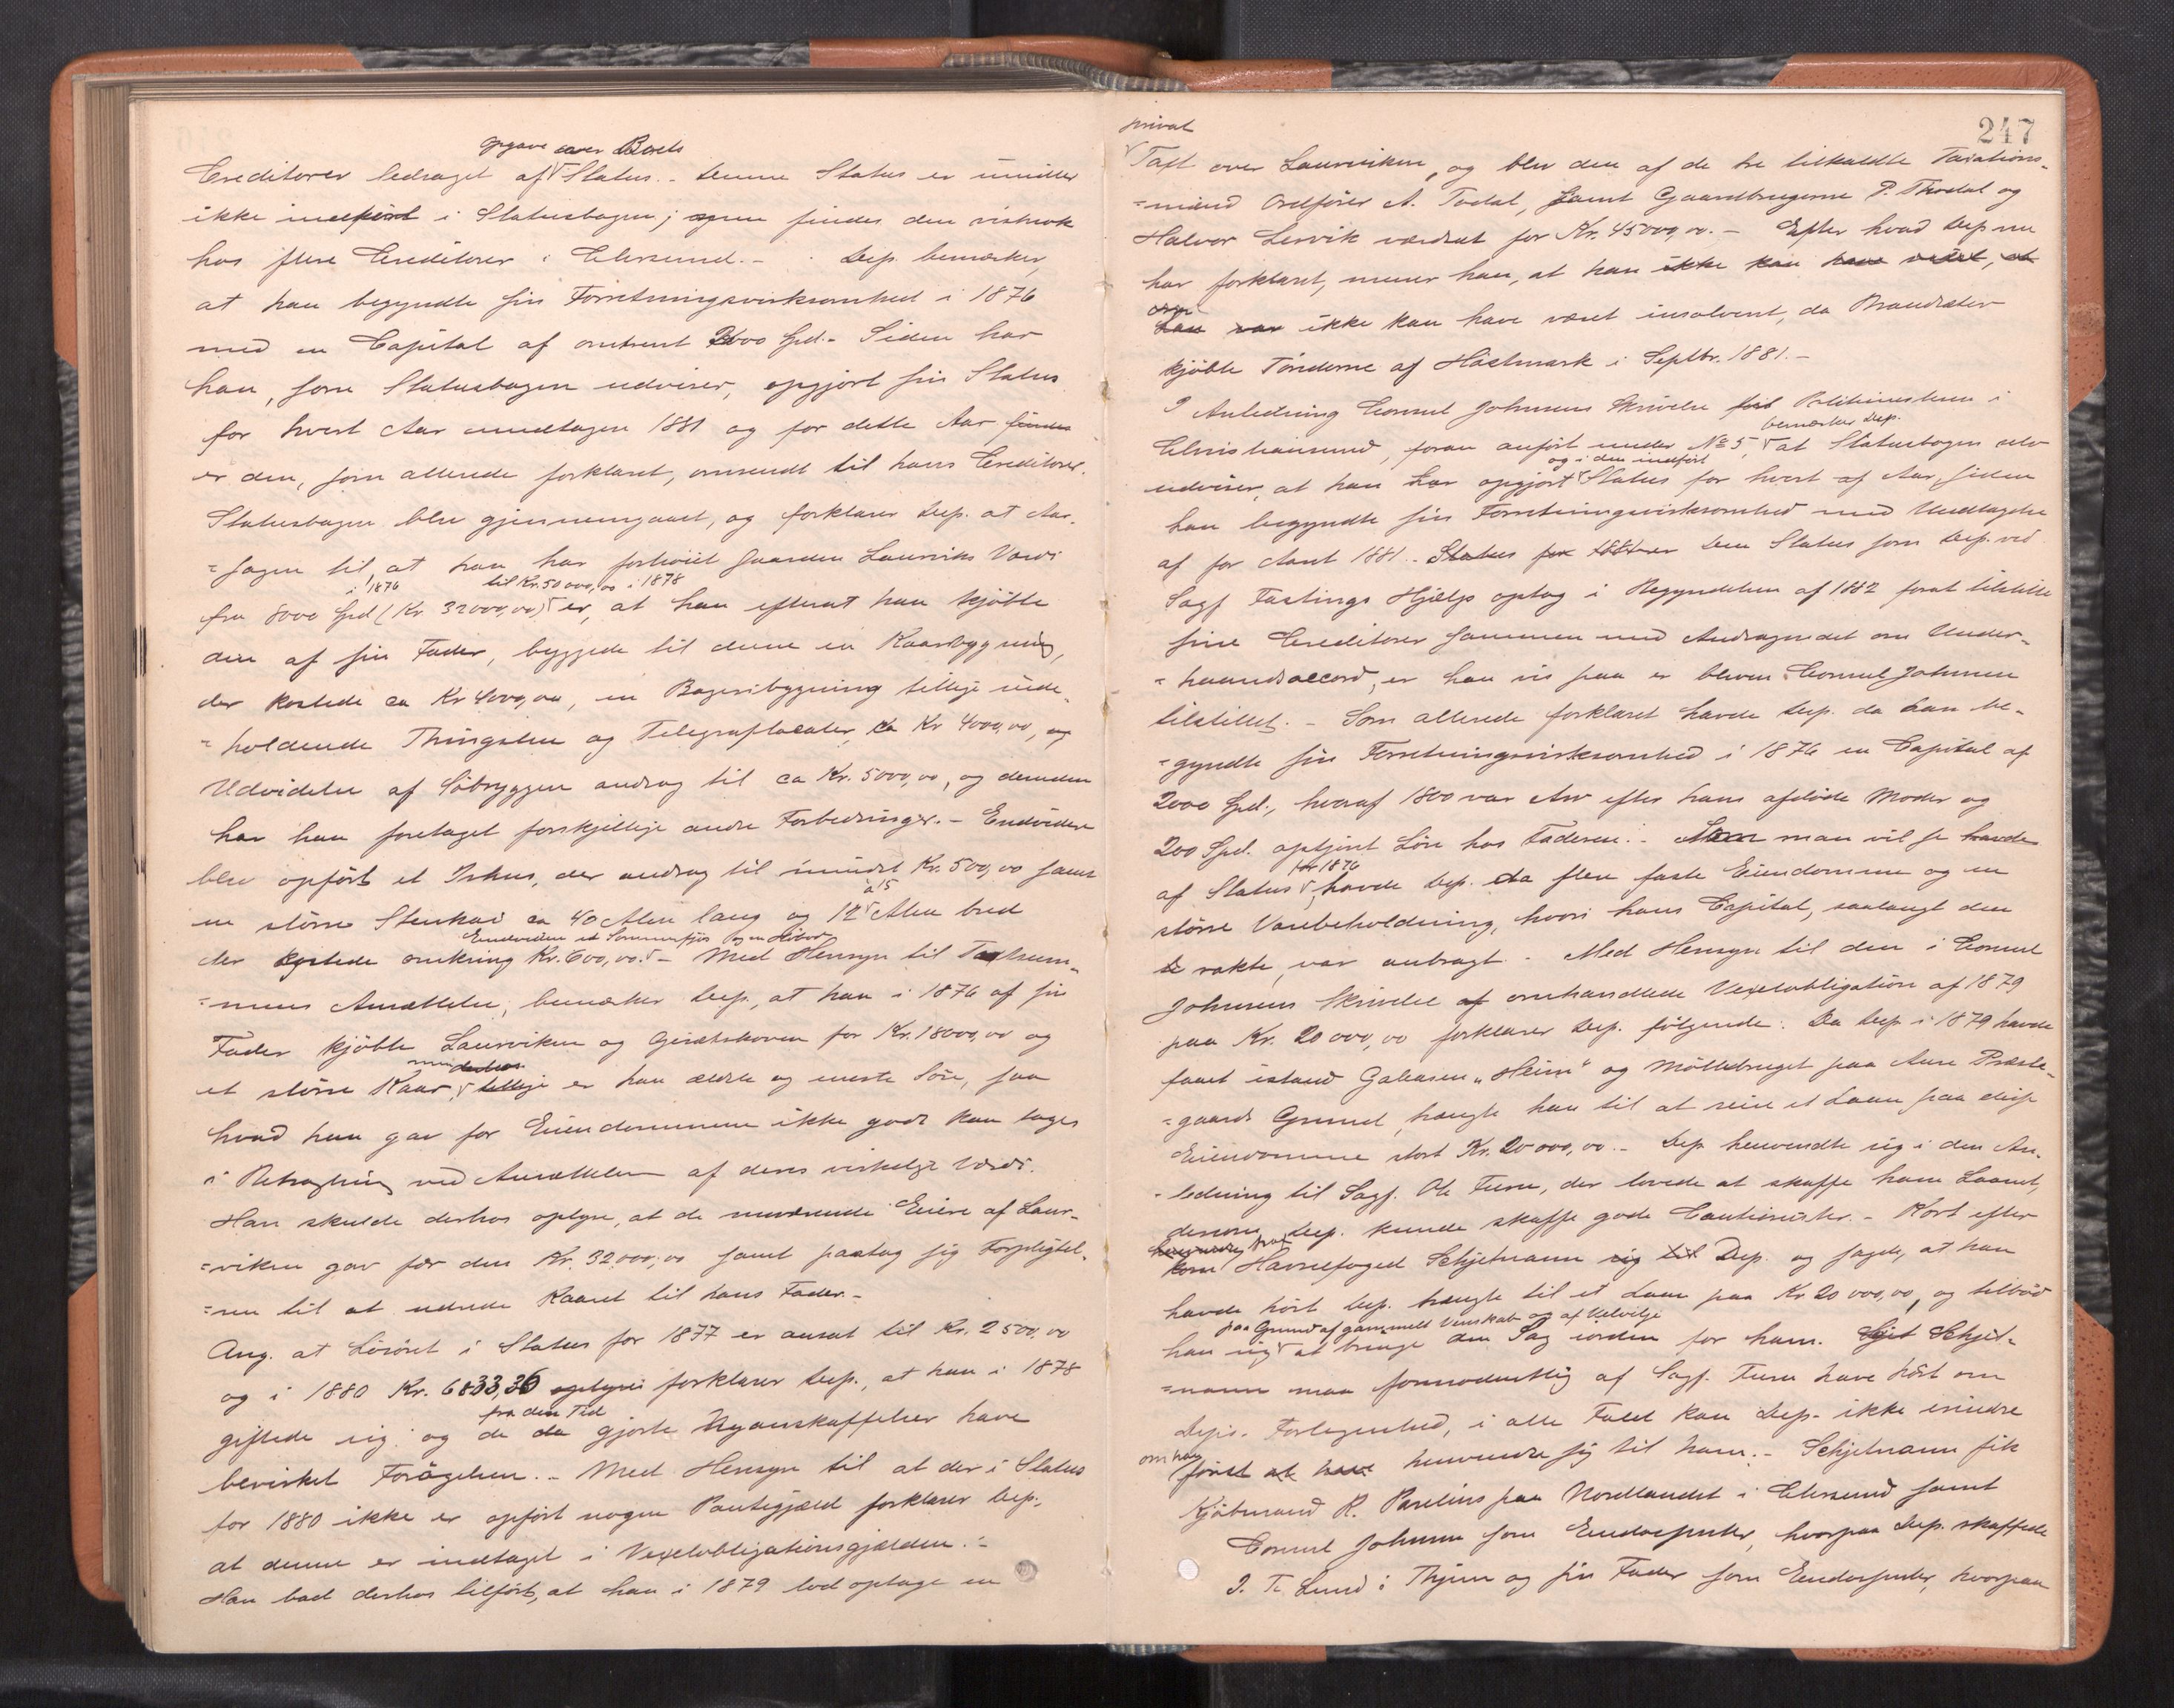 opgave over Boets
Creditorer ledsaget af Status. - Denne Status er imidler
ikke indført i Statusbogen; men findes den vistnok
hos flere Creditorer i Chrsund. - Dep. bemærker,
at han begyndte sin Forretningsvirksomhed i 1876
med en Capital af omtrent 2000 Spd. - Siden har
han, som Statusbogen udviser, opgjort sin Status
for hvert Aar undtagen 1881 og for dette Aar findes
er den, som allerede forklaret, omsendt til hans Creditorer.
Statusbogen blev gjennemgaaet, og forklarer Dep. at Aar-
=sagen til, at han har forhøiet Gaarden Laurviks Værdi
i 1876 til Kr. 50 000,00 i 1878
fra 8000 Spd (Kr. 32000,00) er, at han efterat han kjøbte
den af sin Fader, byggede til denne en Kaarbygning,
der kostede ca Kr 4000,00, en Bageribygning tillige inde-
=holdende Thingstue og Telegraflocaler, ca Kr 4000,00, og
Udvidelse af Søbryggen androg til ca Kr. 5000,00, og desuden
har han foretaget forskjellige andre Forbedringer. - Endvidere
blev opført et Ishus, der androg til mindst Kr. 500,00 samt
à 15
en større Stenkai ca 40 Alen lang og 12 Alen bred
Endvidere et Sommerfjøs og en
der kostede omkring Kr. 600,00. - Med Hensyn til Taxtsum-
=mens Ansættelse, bemærker Dep., at han i 1876 af sin
Fader kjøbte Laurviken og for Kr. 18000,00 og
derhos
et større Kaar, tillige er han ældste og eneste Søn, saa
hvad han gav for Eiendommene ikke godt kan tages
i Betragtning ved Ansættelsen af deres virkelige Værdi.
Han skulde derhos oplyse, at de nuværende Eiere af Laur-
=viken gav for den Kr. 32.000,00 samt paatog sig Forpligtel-
=sen til at udrede Kaaret til hans Fader. -
Ang. at Løsøret i Status for 1877 er ansat til Kr. 2500,00
og i 1880 Kr. 6833,36 oplyser forklarer Dep., at han i 1878
fra den Tid
giftede sig og de da gjorte Nyanskaffelser have
bevirket Forøgelsen. - Med Hensyn til at der i Status
for 1880 ikke er opført nogen Pantegjæld forklarer Dep.,
at denne er indtaget i Vexelobligationsgjælden. -
Han bad derhos tilført, at han i 1879 lod optage en
247
privat
Taxt over Laurviken, og blev den af de tre tilkaldte Taxations-
=mænd Ordfører A. Todal, samt Gaardbrugerne P. Thodal og
Halvor Lervik værdsat for Kr. 45000,00. - Efter hvad Dep nu
har forklaret, mener han, at han ikke kan have vidst, at
han var ikke kan have været insolvent, da Brandsæter
kjøbte Tønderne af Hastmark i Septbr. 1881. -
I Anledning Consul Johnsens Skrivelse til Politimesteren i
bemærker Dep.
Christiansund, foran anført under No 5, at Statusbogen selv
og i den indført
udviser, at han har opgjort Status for hvert af Aar, siden
han begyndte sin Forretningsvirksomhed med Undtagelse
af for Aaret 1881. - Status for 1881 er Den Status som Dep. ved
Sagf. Fastings Hjælp optog i Begyndelsen af 1882 forat tilstille
sine Creditorer sammen med Andragendet om Under-
=haandsaccord, er han vis paa er bleven Consul Johnsen
tilstillet. - Som allerede forklaret havde Dep. da han be-
=gyndte sin Forretningsvirksomhed i 1876 en Capital af
2000 Spd., hvoraf 1800 var Arv efter hans afdøde Moder og
200 Spd. optjent Løn hos Faderen. - Som man vil se havde
for 1876
af Status, havde Dep. da flere faste Eiendomme og en
større Varebeholdning, hvori hans Capital, saalangt den
rakte, var anbragt. - Med Hensyn til den i Consul
Johnsens Skrivelse af omhandlede Vexelobligation af 1879
paa Kr. 20 000,00 forklarer Dep. følgende: Da Dep i 1879 havde
faaet istand Galeasen "Heim" og Møllebruget paa Aure Præste-
=gaards Grund, trængte han til at reise et Laan paa disse
Eiendomme stort Kr. 20 000,00. - Dep henvendte sig i den An-
=ledning til Sagf. Ole Furu, der lovede at skaffe ham Laanet,
dersom Dep. kunde skaffe gode Cautionister. - Kort efter
kom Havnefoged Schjetnann sig til Dep. og sagde, at han
havde hørt Dep. trængte til et Laan paa Kr 20 000,00, og tilbød
paa Grund af gammelt Venskab og af Velvilje
han sig at bringe den Sag iorden for ham. Schjet-
=nann maa formodentlig af Sagf. Furu have hørt om
Dep's. Forlegenhed, i alle Fald kan Dep. ikke erindre
om han
først at have henvendte sig til ham. - Schjetnann fik
Kjøbmand R. Parelius paa Nordlandet i Chrsund samt
Consul Johnsen som Endossenter, hvorpaa Dep. skaffede
I. Lund i og sin Fader som Endossenter, hvorpaa